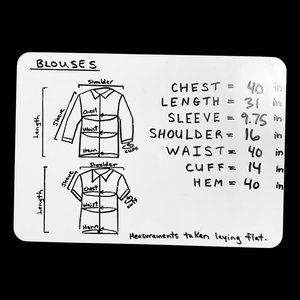 BLOUSES
Shoulder
Sleeve
Length
Chest
Waist
Hem
Cuff
CHEST = 40 in
LENGTH = 31 in
SLEEVE = 9.75 in
SHOULDER = 16 in
WAIST = 40 in
CUFF = 14 in
HEM = 40 in
Shoulder
Sleeve
Length
Chest
Waist
Hem
Cuff
Measurements taken laying flat.